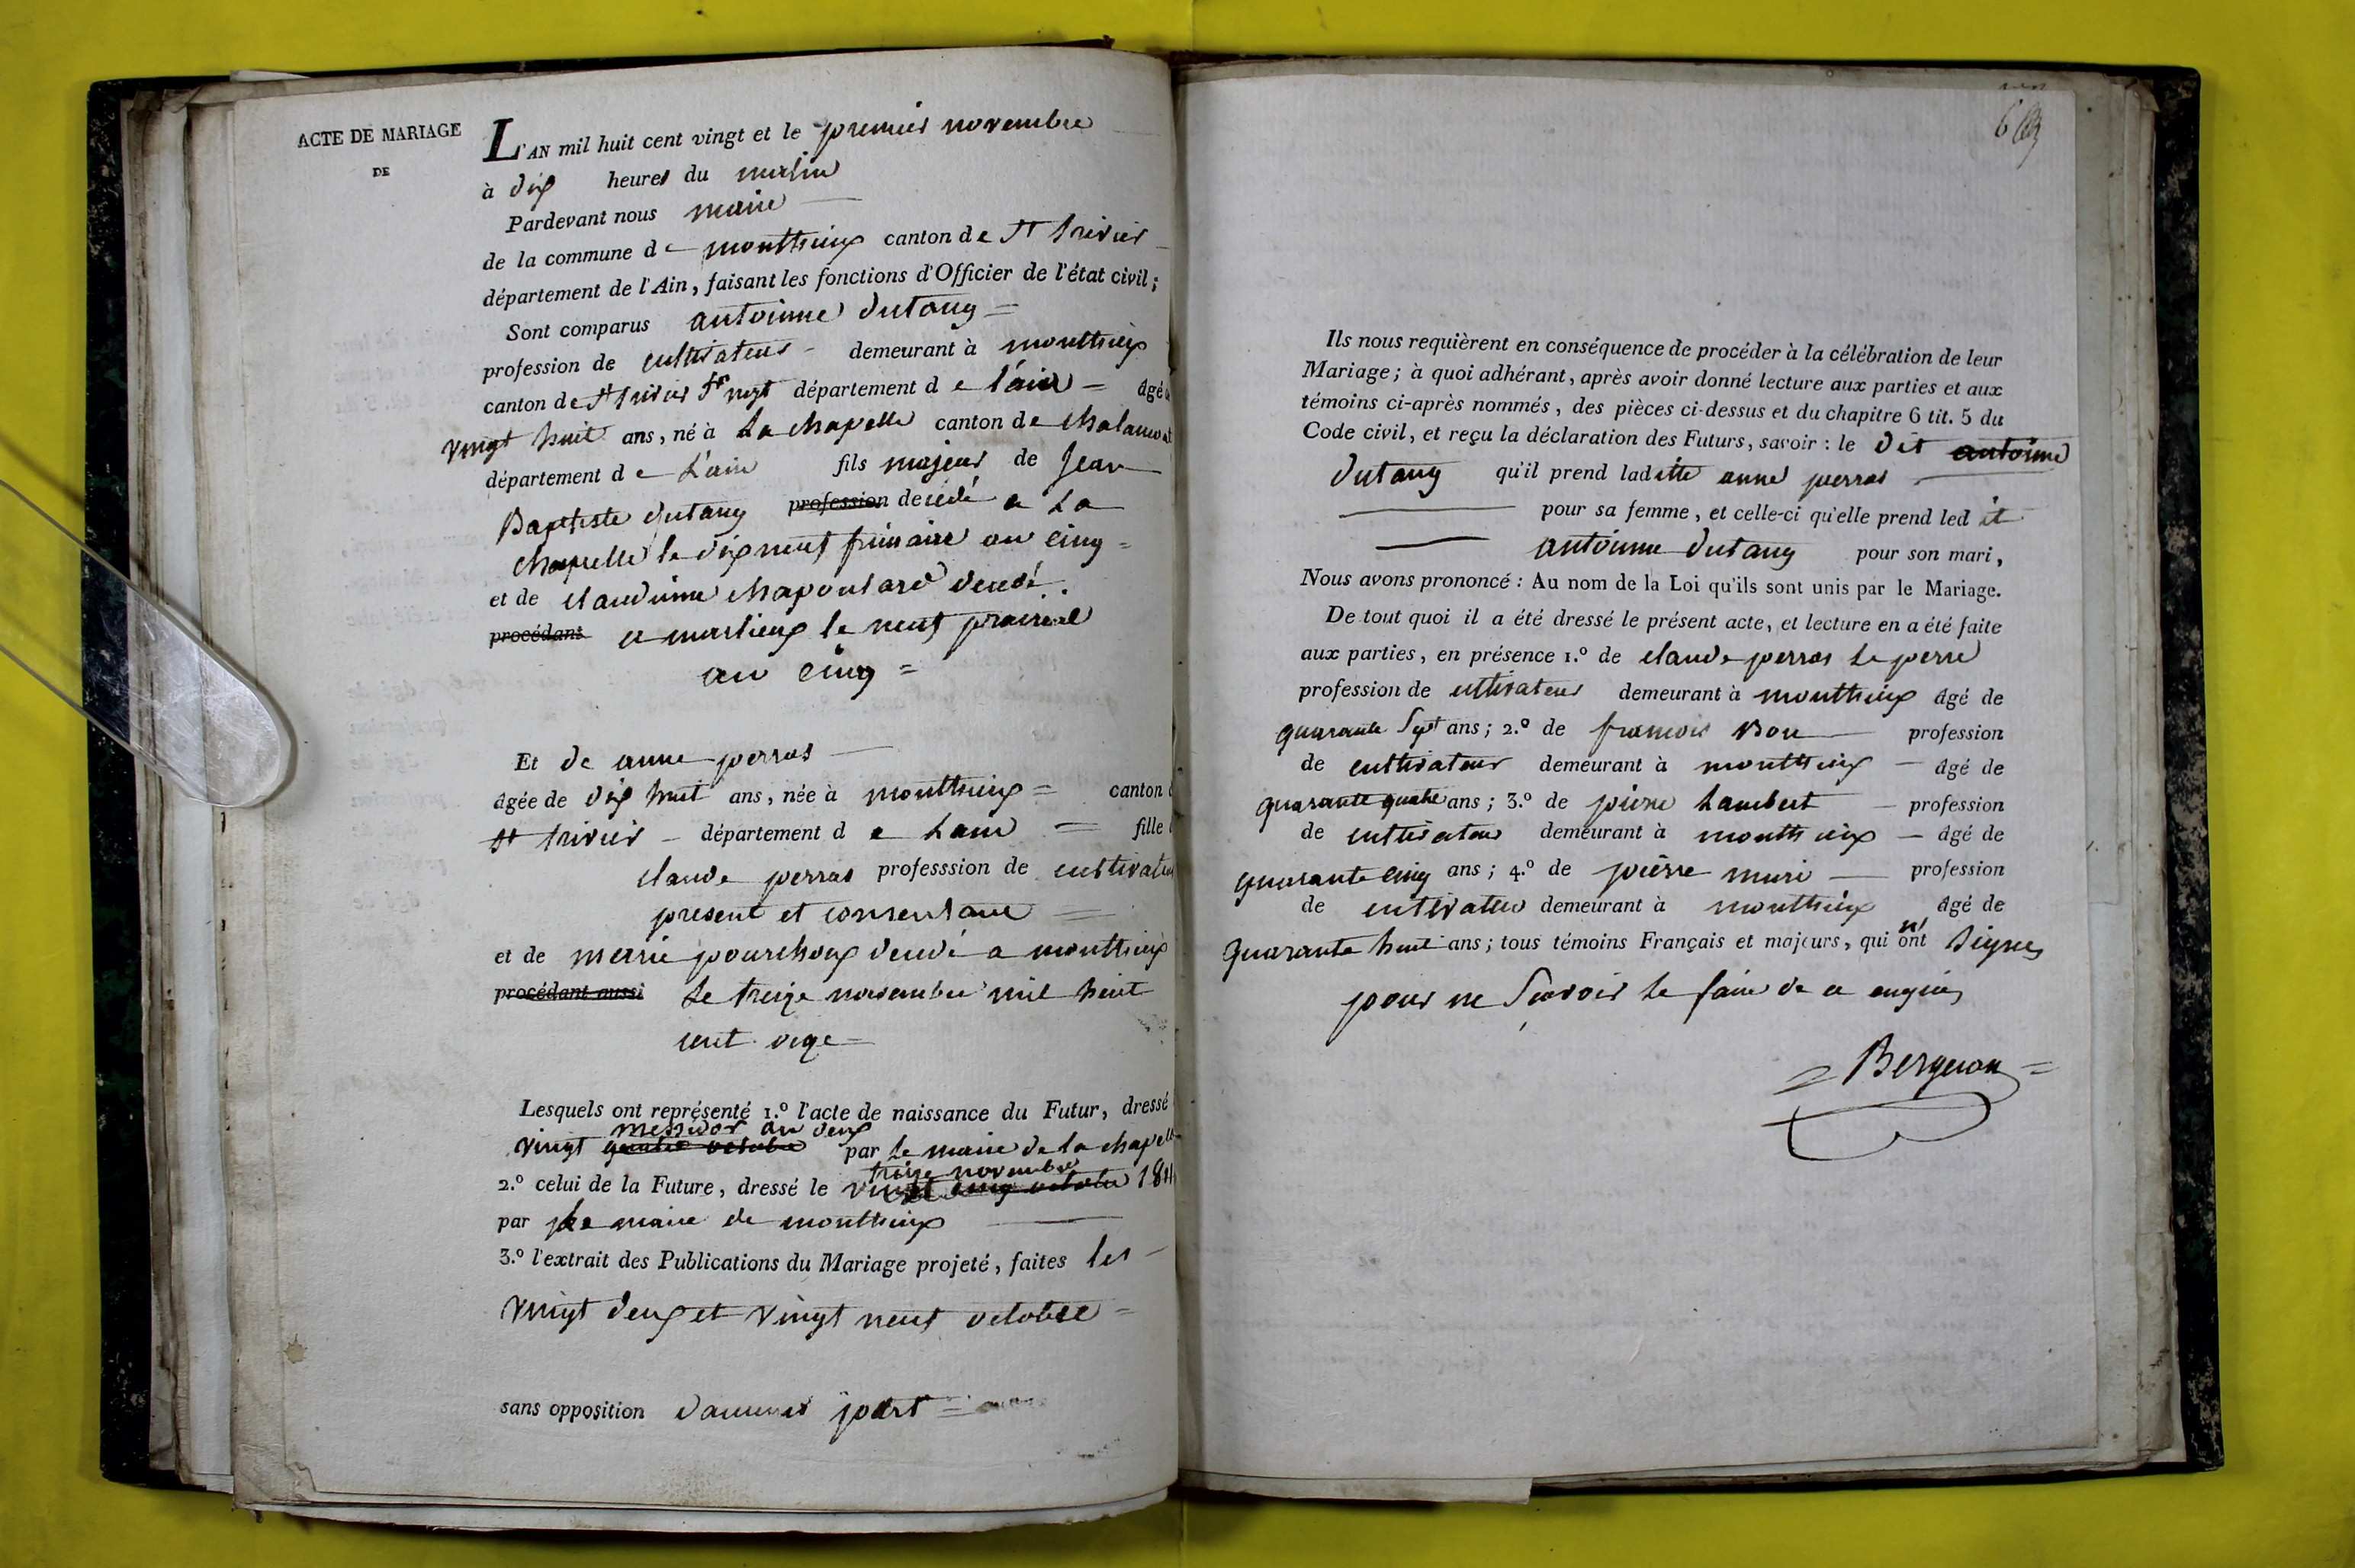 ACTE DE MARIAGE
DE
L'AN mil huit cent vingt et le premier novembre
à dix heures du matin
Pardevant nous maire
de la commune de monthieux canton de St trivier
département de l'Ain, faisant les fonctions d'Officier de l'état civil;
Sont comparus antoinne dutang =
profession de cultivateur - demeurant à monthieux
canton de St trivier Sr moyt département de l'ain - âgé de
vingt huit ans, né à La chapelle canton de chalamont
département de L'ain fils majeur de Jean
Baptiste dutang profession decédé a La
chapelle le dix neuf frimaire an cinq =
et de claudinne chapoulard decedé
procédant a marlieux le neuf prairial
an cinq =
Et de anne perras
âgée de dix huit ans, née à monthieux = canton d
St trivier - département de Lain = fille
claude perras professsion de cultivateur
present et consentant =
et de merrie pourchoux decedé a monthieux
procédant aussi Le treize novembre mil huit
cent onze =
Lesquels ont représenté 1.º l'acte de naissance du Futur, dressé
messidor an deux
vingt quatre octobre par Le maire de La chapelle
treize novembre
2.º celui de la Future, dressé le vingt cinq octobre
par Le maire de monthieux
3.º l'extrait des Publications du Mariage projeté, faites les
vingt deux et vingt neuf octobre =
sans opposition d'aucunes part =
Ils nous requièrent en conséquence de procéder à la célébration de leur
Mariage; à quoi adhérant, après avoir donné lecture aux parties et aux
témoins ci-après nommés, des pièces ci-dessus et du chapitre 6 tit. 5 du
Code civil, et reçu la déclaration des Futurs, savoir : le dit antoinne
dutang qu'il prend laditte anne perras
pour sa femme, et celle-ci qu'elle prend ledit
antoinne dutang pour son mari,
Nous avons prononcé : Au nom de la Loi qu'ils sont unis par le Mariage.
De tout quoi il a été dressé le présent acte, et lecture en a été faite
aux parties, en présence 1.º de claude perras Le perre
profession de cultivateur demeurant à monthieux âgé de
quarante Sept ans; 2.º de francois Bon profession
de cultivateur demeurant à monthieux - âgé de
quarante quatre ans; 3.º de pierre Lambert - profession
de cultivateur demeurant à monthieux - âgé de
quarante cinq ans; 4.º de pierre muri profession
de cultivateur demeurant à monthieux âgé de
quarante huit ans; tous témoins Français et majeurs, qui n'ont Signes
pour ne Scavoir Le faire de ce enquis
= Bergeron =